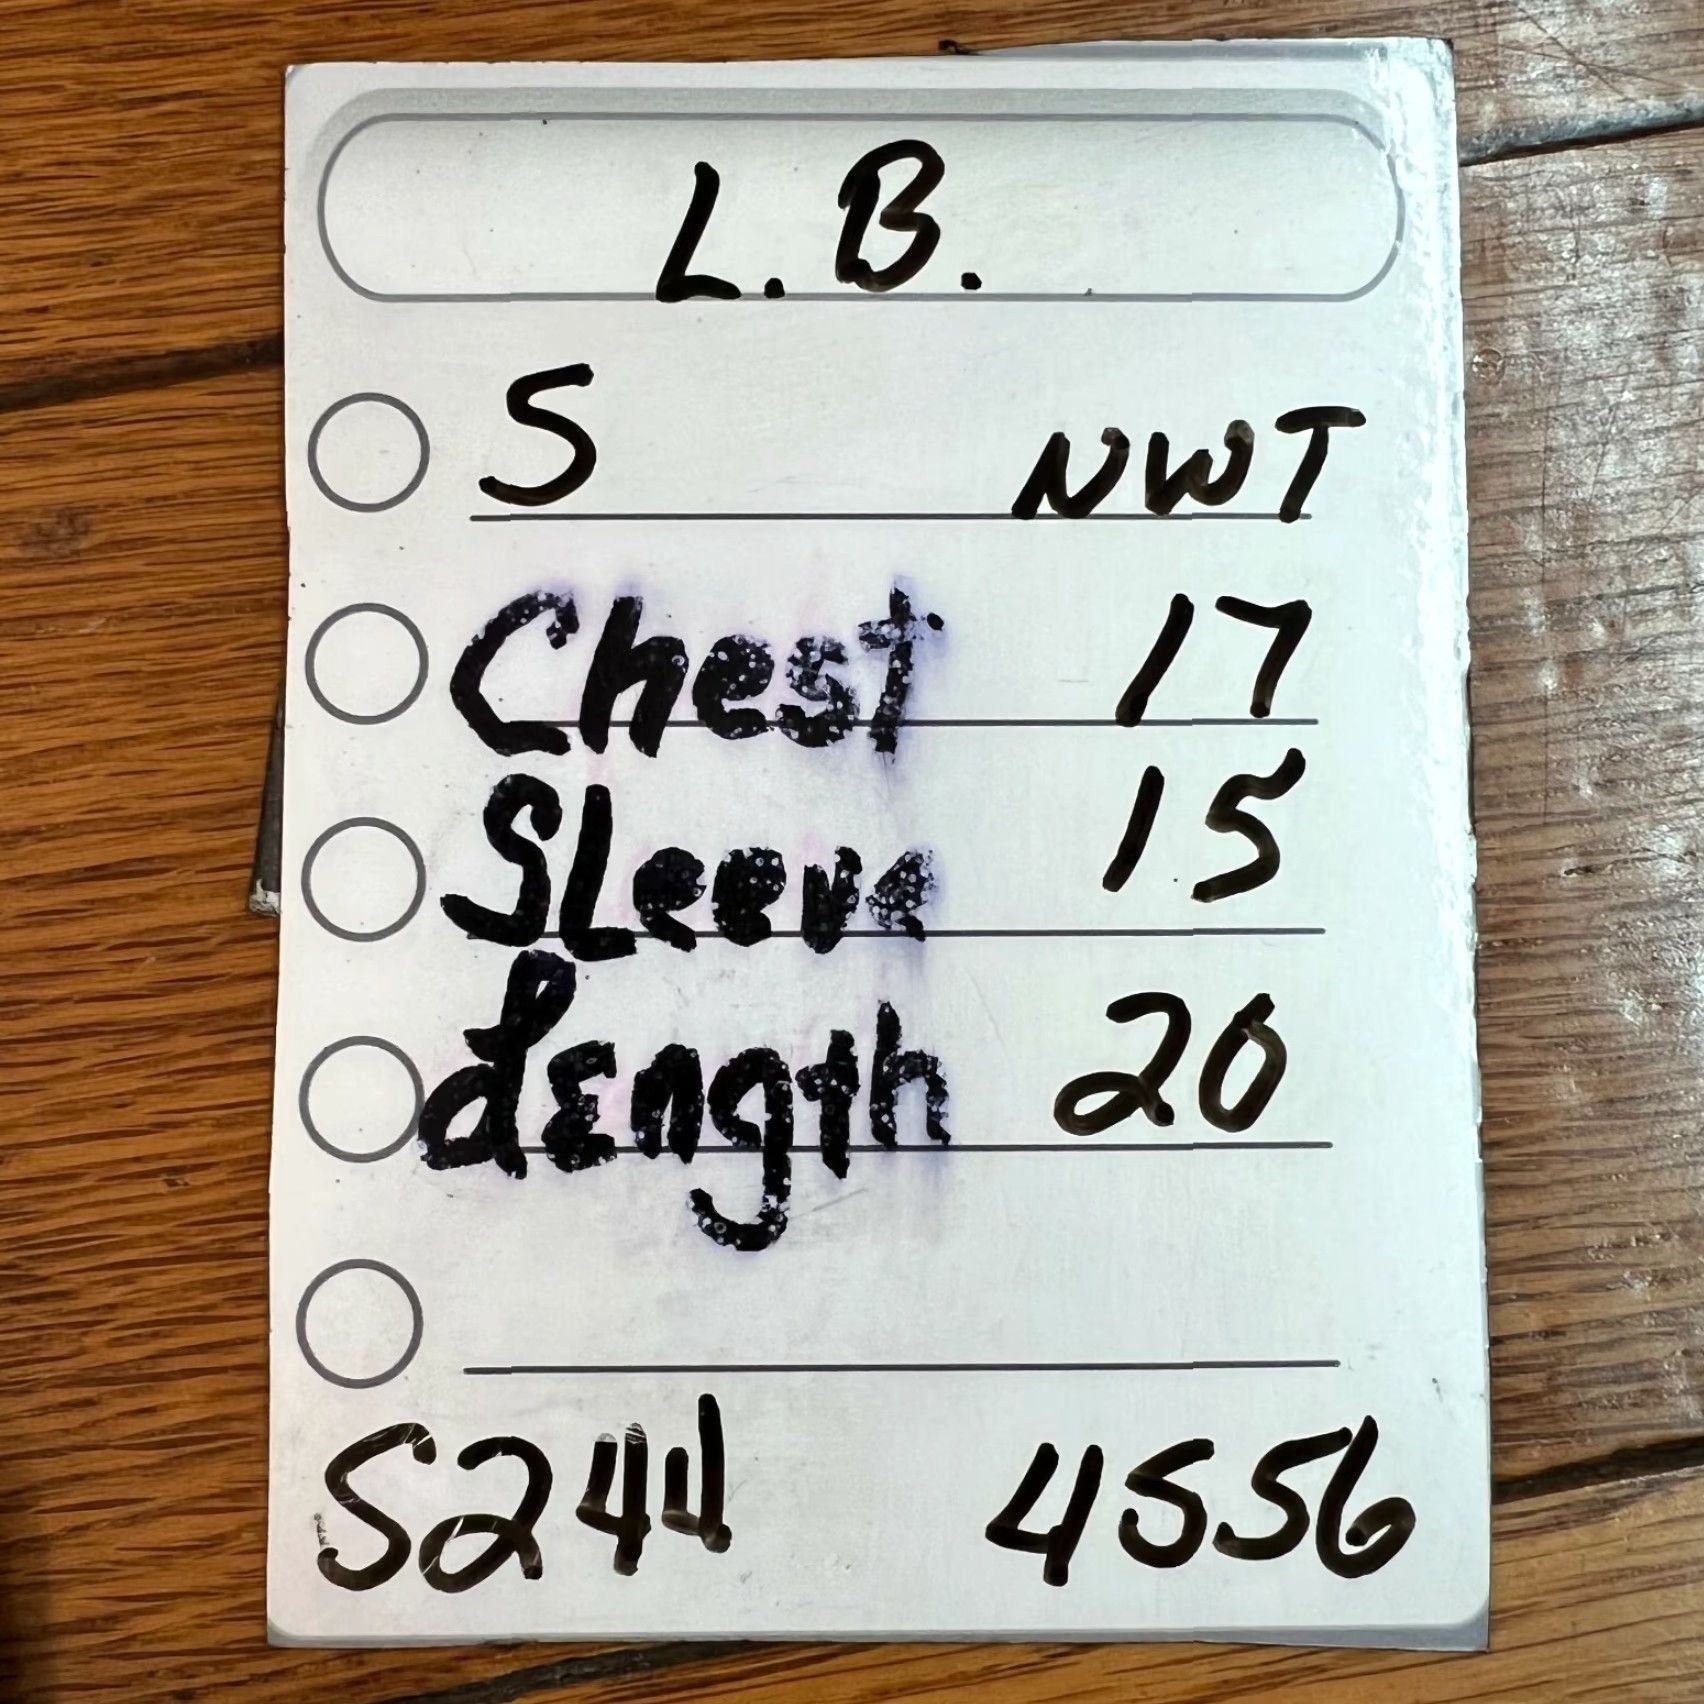 L.B.
S NWT
Chest 17
SLeeve 15
Length 20
S244 4556